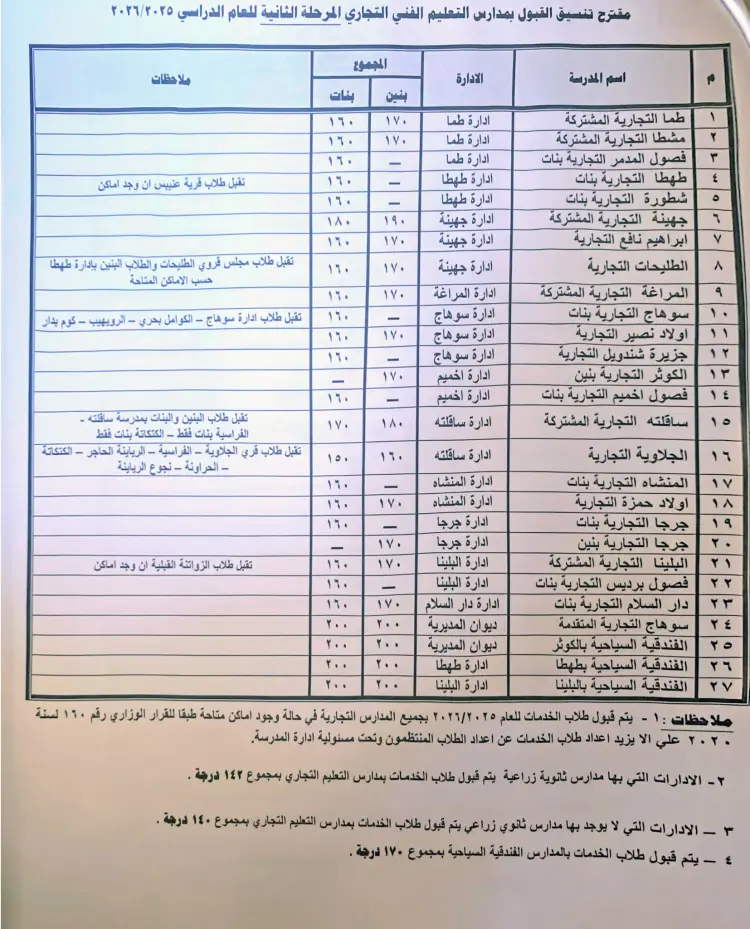 مقترح تنسيق القبول بمدارس التعليم الفني التجاري المرحلة الثانية للعام الدراسي ٢٠٢٦/٢٠٢٥
م اسم المدرسة الادارة المجموع ملاحظات
بنين بنات
١ طما التجارية المشتركة ادارة طما ١٧٠ ١٦٠
٢ مشطا التجارية المشتركة ادارة طما ١٧٠ ١٦٠
٣ فصول المدمر التجارية بنات ادارة طما — ١٦٠
٤ طهطا التجارية بنات ادارة طهطا — ١٦٠ تقبل طلاب قرية عنيبس ان وجد اماكن
٥ شطورة التجارية بنات ادارة طهطا — ١٦٠
٦ جهينة التجارية المشتركة ادارة جهينة ١٩٠ ١٨٠
٧ ابراهيم نافع التجارية ادارة جهينة ١٧٠ ١٦٠
٨ الطليحات التجارية ادارة جهينة ١٧٠ ١٦٠ تقبل طلاب مجلس قروي الطليحات والطلاب البنين بإدارة طهطا
حسب الاماكن المتاحة
٩ المراغة التجارية المشتركة ادارة المراغة ١٧٠ ١٦٠
١٠ سوهاج التجارية بنات ادارة سوهاج — ١٦٠ تقبل طلاب ادارة سوهاج – الكوامل بحري – الرويهيب – كوم بدار
١١ اولاد نصير التجارية ادارة سوهاج ١٧٠ ١٦٠
١٢ جزيرة شندويل التجارية ادارة سوهاج — ١٦٠
١٣ الكوثر التجارية بنين ادارة اخميم ١٧٠ —
١٤ فصول اخميم التجارية بنات ادارة اخميم — ١٦٠
١٥ ساقلته التجارية المشتركة ادارة ساقلته ١٨٠ ١٧٠ تقبل طلاب البنين والبنات بمدرسة ساقلته -
الفراسية بنات فقط – الكتكاتة بنات فقط
١٦ الجلاوية التجارية ادارة ساقلته ١٦٠ ١٥٠ تقبل طلاب قري الجلاوية – الفراسية – الرياينة الحاجر – الكتكاتة
– الحراونة – نجوع الرياينة
١٧ المنشاه التجارية بنات ادارة المنشاه — ١٦٠
١٨ اولاد حمزة التجارية ادارة المنشاه ١٧٠ ١٦٠
١٩ جرجا التجارية بنات ادارة جرجا — ١٦٠
٢٠ جرجا التجارية بنين ادارة جرجا ١٧٠ —
٢١ البلينا التجارية المشتركة ادارة البلينا ١٧٠ ١٦٠ تقبل طلاب الزواتنة القبلية ان وجد اماكن
٢٢ فصول برديس التجارية بنات ادارة البلينا — ١٦٠
٢٣ دار السلام التجارية بنات ادارة دار السلام ١٧٠ ١٦٠
٢٤ سوهاج التجارية المتقدمة ديوان المديرية ٢٠٠ ٢٠٠
٢٥ الفندقية السياحية بالكوثر ديوان المديرية ٢٠٠ ٢٠٠
٢٦ الفندقية السياحية بطهطا ادارة طهطا ٢٠٠ ٢٠٠
٢٧ الفندقية السياحية بالبلينا ادارة البلينا ٢٠٠ ٢٠٠
ملاحظات : ١ - يتم قبول طلاب الخدمات للعام ٢٠٢٦/٢٠٢٥ بجميع المدارس التجارية في حالة وجود اماكن متاحة طبقا للقرار الوزاري رقم ١٦٠ لسنة
٢٠٢٠ علي الا يزيد اعداد طلاب الخدمات عن اعداد الطلاب المنتظمون وتحت مسئولية ادارة المدرسة.
٢- الادارات التي بها مدارس ثانوية زراعية يتم قبول طلاب الخدمات بمدارس التعليم التجاري بمجموع ١٤٢ درجة .
٣ – الادارات التي لا يوجد بها مدارس ثانوي زراعي يتم قبول طلاب الخدمات بمدارس التعليم التجاري بمجموع ١٤٠ درجة .
٤ – يتم قبول طلاب الخدمات بالمدارس الفندقية السياحية بمجموع ١٧٠ درجة .